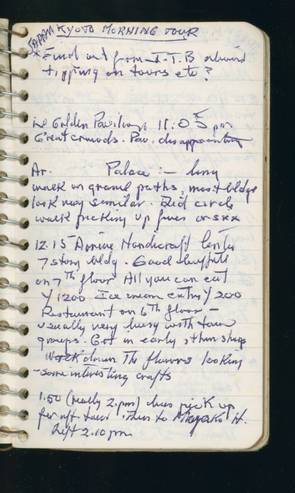 8.30AM KYOTO MORNING TOUR
* Find out from J.T.B about
tipping on tours etc?
Golden Pavilion, 11.05
Great crowds. Pav. disappointing
Ar. Palace :- long
walk on gravel paths, most bldgs
look very similar. Did circle
walk up
12.15 Arrive Handicraft Center
7 story bldg. Good buffet
on 7th floor All you can eat
Y 1200 Ice cream extra Y 200
Restaurant on 6th floor -
usually very busy with tour
groups. Got in early & then shops
Worked down the floors looking
- some interesting crafts
1.50 (really 2.pm) bus pick up
for aft tour. Thence to Miyako H.
Left 2.10 pm